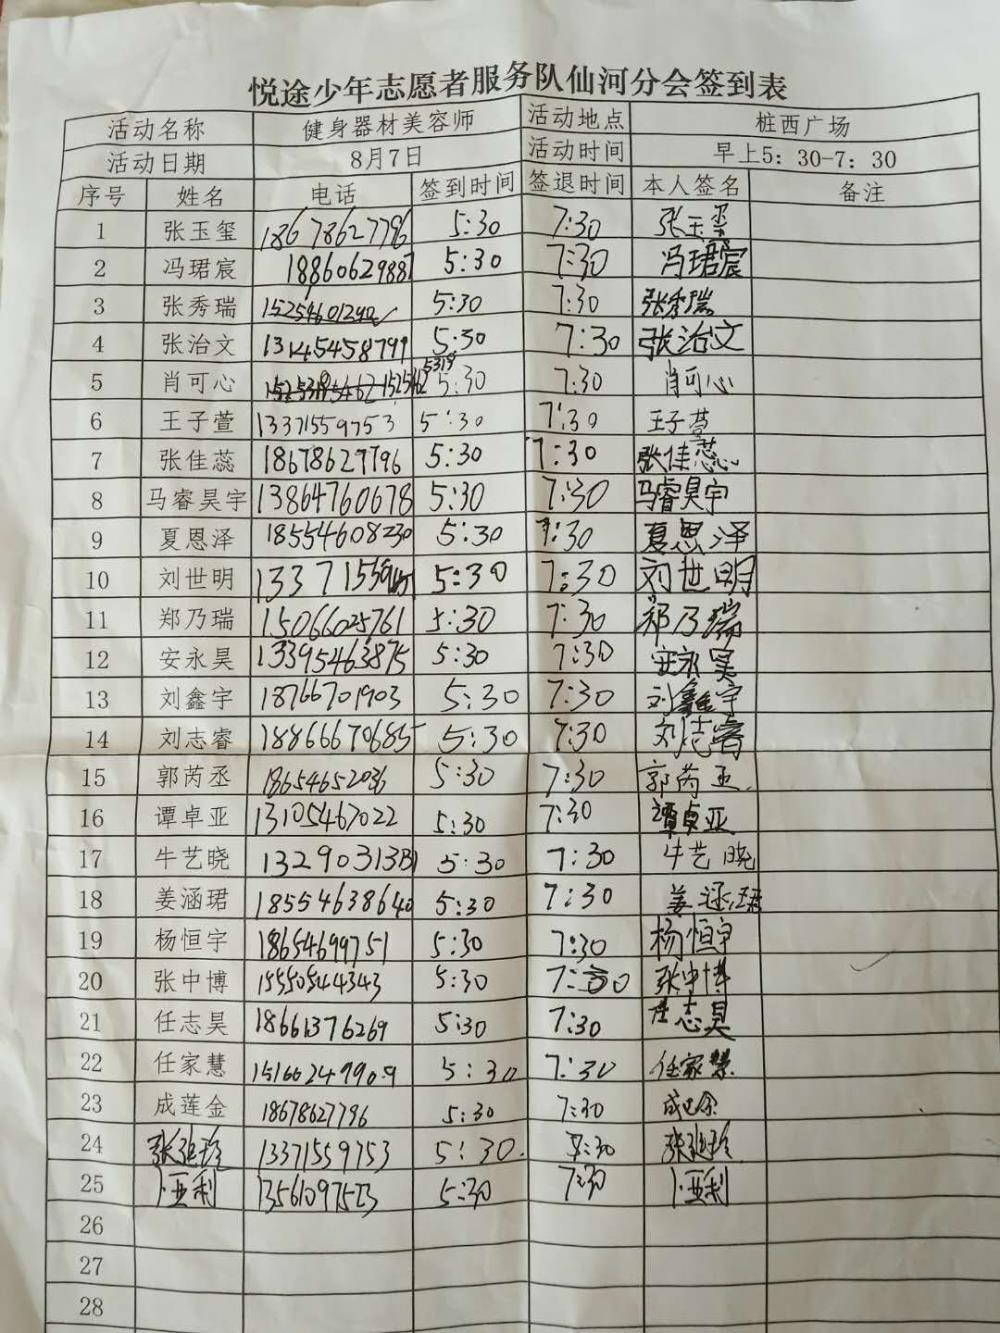 悦途少年志愿者服务队仙河分会签到表
活动名称 健身器材美容师 活动地点 桩西广场
活动日期 8月7日 活动时间 早上5：30-7：30
序号 姓名 电话 签到时间 签退时间 本人签名 备注
1 张玉玺 18678627796 5:30 7:30 张玉玺
2 冯珺宸 18860629887 5:30 7:30 冯珺宸
3 张秀瑞 5:30 7:30 张秀瑞
4 张治文 13145458799 5:30 7:30 张治文
5 肖可心 5:30 7:30 肖可心
6 王子萱 13371559753 5:30 7:30 王子萱
7 张佳蕊 18678627796 5:30 7:30 张佳蕊
8 马睿昊宇 13864760678 5:30 7:30 马睿昊宇
9 夏恩泽 18554608230 5:30 7:30 夏恩泽
10 刘世明 5:30 7:30 刘世明
11 郑乃瑞 15066025761 5:30 7:30 郑乃瑞
12 安永昊 13395463875 5:30 7:30 安永昊
13 刘鑫宇 18766701903 5:30 7:30 刘鑫宇
14 刘志睿 18866670685 5:30 7:30 刘志睿
15 郭芮丞 18654652036 5:30 7:30 郭芮丞
16 谭卓亚 13105467022 5:30 7:30 谭卓亚
17 牛艺晓 5:30 7:30 牛艺晓
18 姜涵珺 18554638640 5:30 7:30 姜涵珺
19 杨恒宇 18654699751 5:30 7:30 杨恒宇
20 张中博 15550544343 5:30 7:30 张中博
21 任志昊 18661376269 5:30 7:30 任志昊
22 任家慧 15166249909 5:30 7:30 任家慧
23 成莲金 18678627796 5:30 7:30
24 13371559753 5:30 7:30
25 卜亚利 13561097523 5:30 7:30 卜亚利
26
27
28